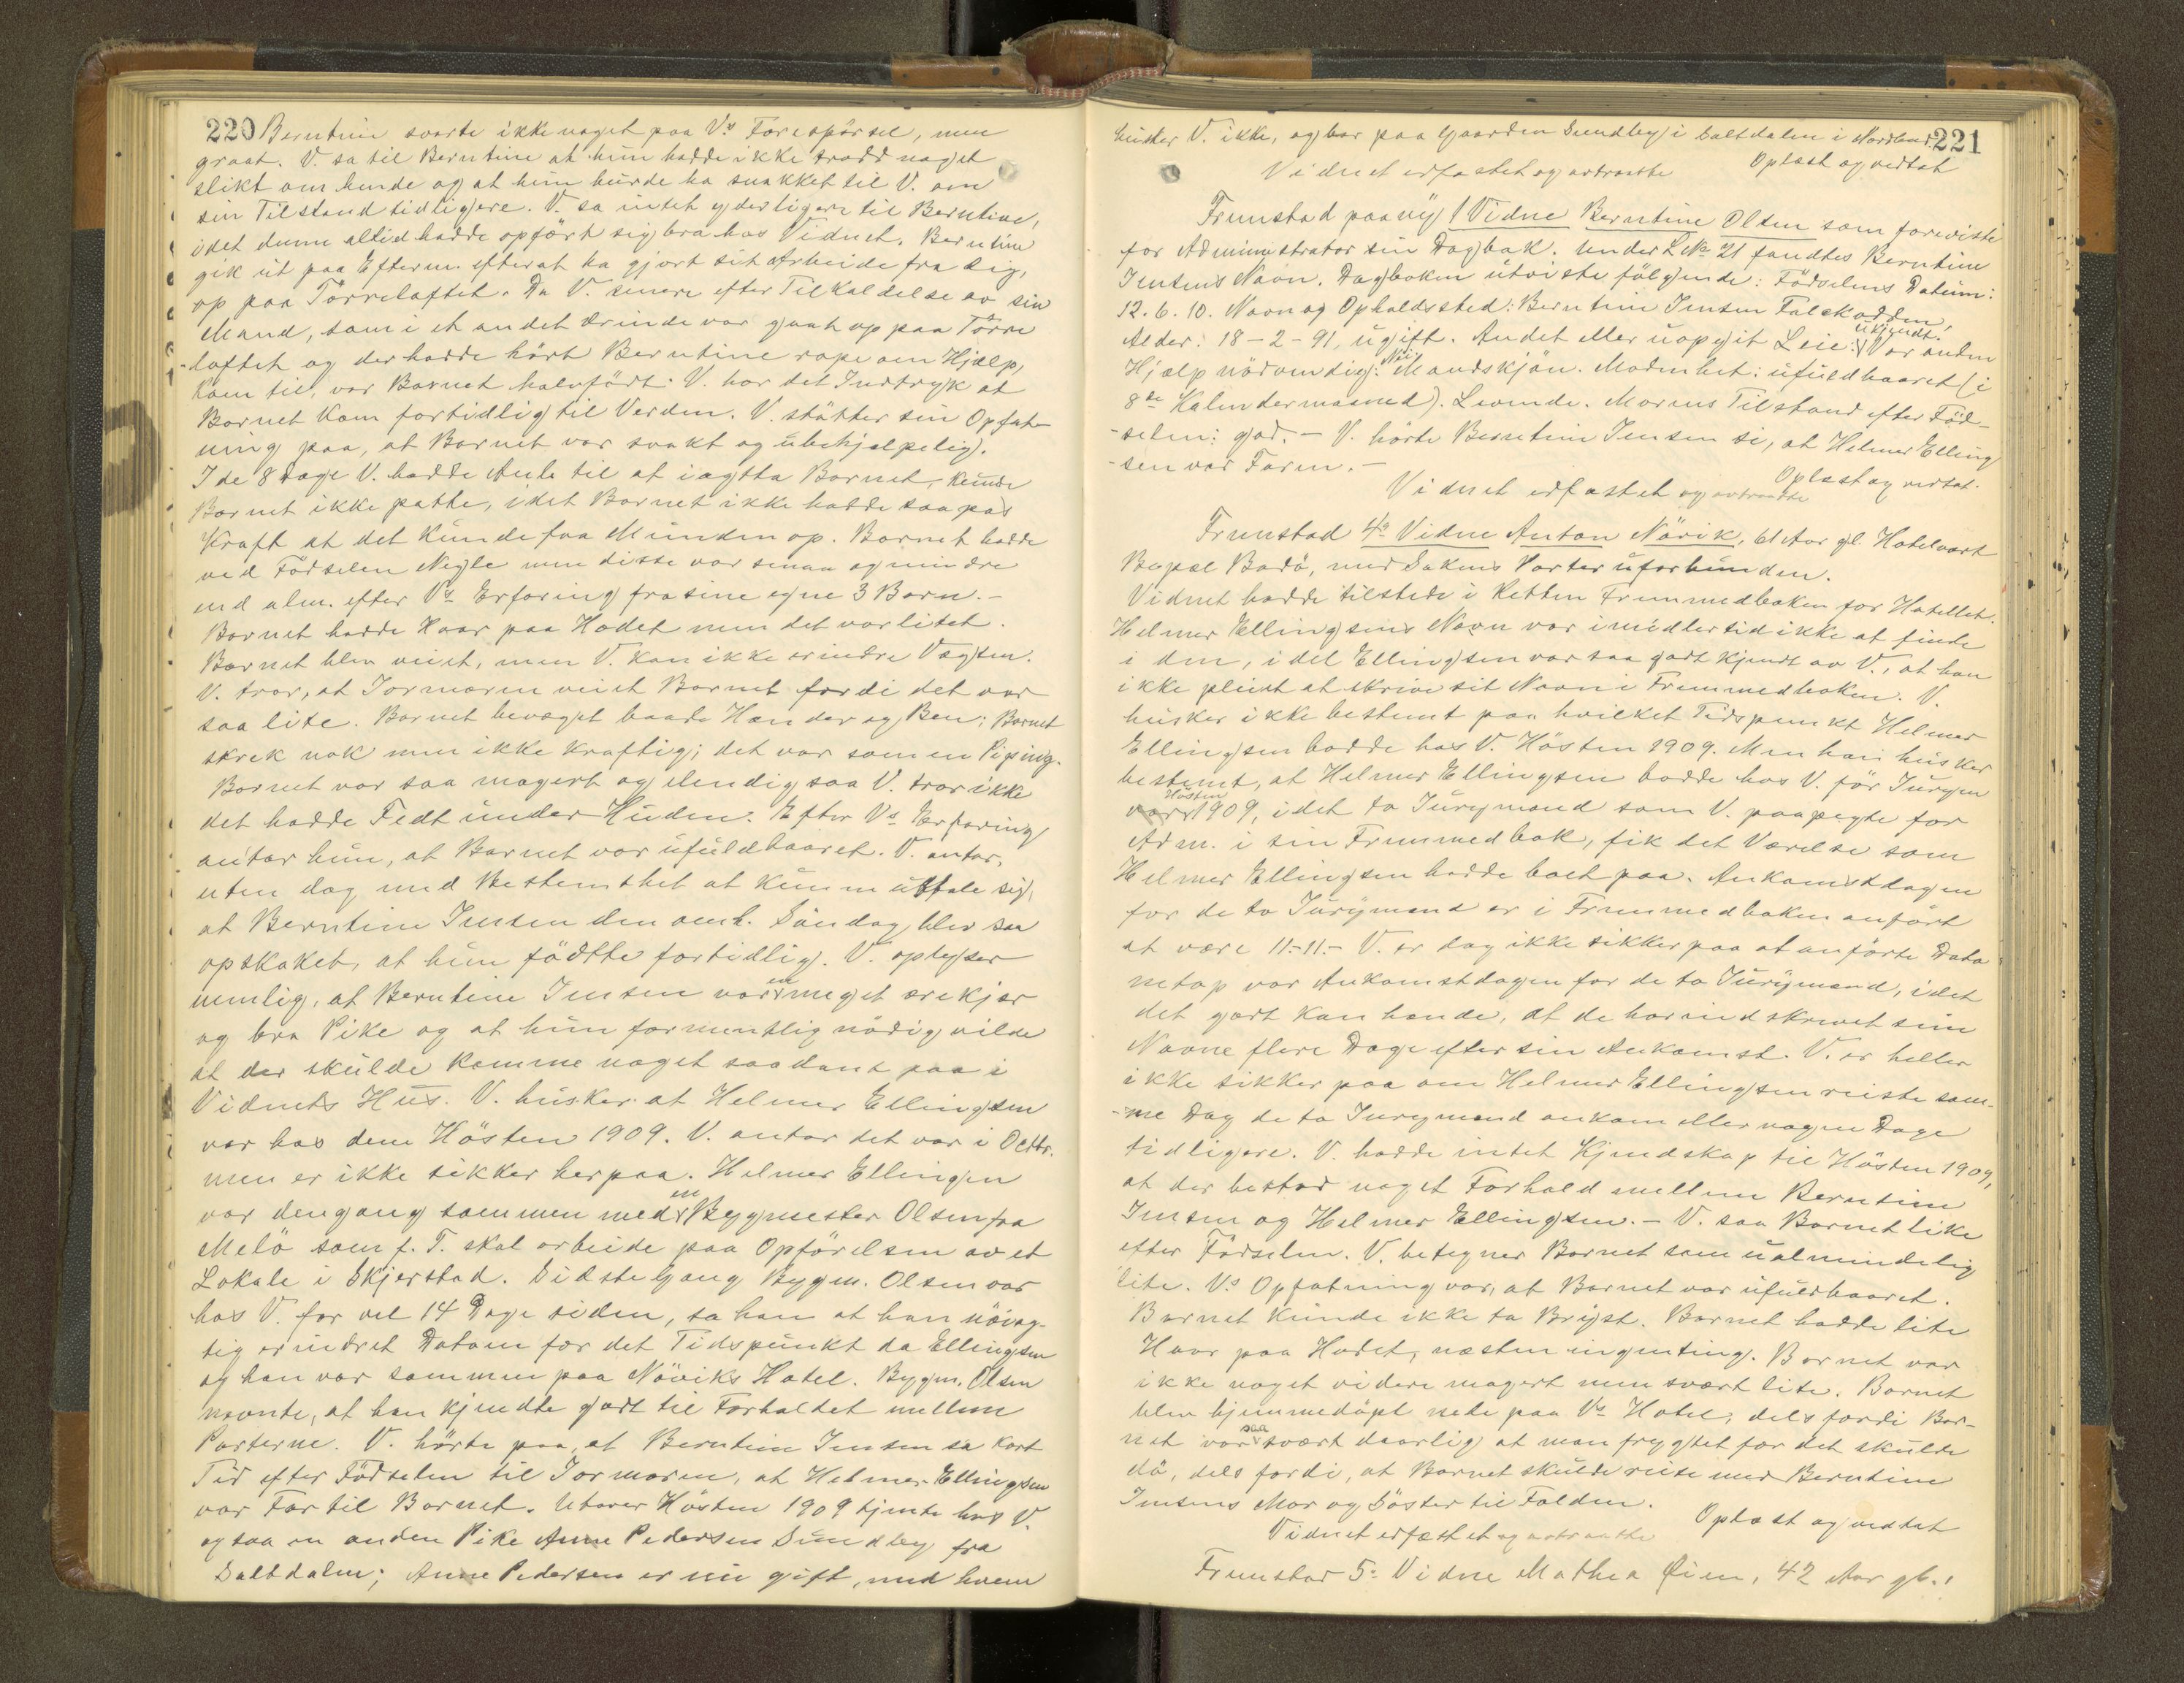 220 Berntine svarte ikke noget paa V's Forespörsel, men
graat. V. sa til Berntine at hun hadde ikke trodd noget
slikt om hende og at hun burde ha snakket til V. om
sin Tilstand tidligere. V. sa intet yderligere til Berntine,
idet denne altid hadde opfört sig bra hos Vidnet. Berntine
gik ut paa Efterm. efterat ha gjort sit Arbeide fra sig,
op paa Törreloftet. Da V. senere efter Tilkaldelse av sin
Mand, som i et andet Ærinde var gaat op paa Törre
-loftet og der hadde hört Berntine rope om Hjælp,
kom til, var Barnet halvfödt. V. har det Indtryk at
Barnet kom fortidlig til Verden. V. stötter sin Opfat-
ning paa, at Barnet var svakt og ubehjelpelig.
I de 8 Dage V. hadde Anle til at iagtta Barnet, kunde
Barnet ikke patte, idet Barnet ikke hadde saapas
Kraft at det kunde faa Munden op. Barnet hadde
ved Födselen Negle men disse var smaa og mindre
end alm. efter V's Erfaring fra sine egne 3 Barn.-
Barnet hadde Haar paa Hodet men det var litet.
Barnet blev veiet, men V. kan ikke erindre Vægten.
V. tror, at Jormoren veiet Barnet fordi det var
saa lite. Barnet bevæget baade Hænder og Ben; Barnet
skrek nok men ikke kraftig; det var som en Piping.
Barnet var saa magert og elendig saa V. tror ikke
det hadde Fedt under Huden. Efter V's Erfaring
antar hun, at Barnet var ufuldbaaret. V. antar,
uten dog med Bestemthet at kunne uttale sig,
at Berntine Jensen den omh. Söndag blev saa
opskaket, at hun födtte fortidlig. V. oplyser
nemlig, at Berntine Jensen var en meget ærekjær
og bra Pike og at hun formentlig nödig vilde
at der skulde komme noget saadant paa i
Vidnets Hus. V. husker at Helmer Ellingsen
var hos dem Hösten 1909. V. antar det var i Octbr.
men er ikke sikker herpaa. Helmer Ellingsen
var dengang sammen med en Bygmester Olsen fra
Melö som f. T. skal arbeide paa Opförelsen av et
Lokale i Skjerstad. Sidste Gang Bygm. Olsen var
hos V. for vel 14 Dage siden, sa han at han nöiag-
tig erindret Datoen for det Tidspunkt da Ellingsen
og han var sammen paa Növiks Hotel. Bygm. Olsen
nævnte, at han kjendte godt til Forholdet mellem
Parterne. V. hörte paa, at Berntine Jensen sa kort
Tid efter Födselen til Jormoren, at Helmer Ellingsen
var Far til Barnet. Utover Hösten 1909 tjente hos V.
ogsaa en anden Pike Anne Pedersen Sundby fra
Saltdalen; Anne Pedersen er nu gift, med hvem
husker V. ikke, og bor paa Gaarden Sundby i Saltdalen i Nordland. 221
Oplæst og vedtat
Vidnet edfæstet og avtraatte
Fremstod paany 1 Vidne Berntine Olsen som foreviste
for Administrator sin Dagbok. Under L. No 21 fandtes Berntine
Jensens Navn. Dagboken utviste fölgende: Födselens Datum:
12.6.10. Navn og Opholdssted: Berntine Jensen Falckodden,
Alder: 18-2-91, ugift. Andet eller uopgit Leie: ukjendt. Var anden
Hjælp nödvendig: Nei. Mandskjön. Modenhet: ufuldbaaret (i
8de Kalendermaaned). Levende. Morens Tilstand efter Föd-
-selen: god. - V. hörte Berntine Jensen si, at Helmer Elling
-sen var Faren.-
Oplæst og vedtat.
Vidnet edfæstet og avtraatte
Fremstod 4de Vidne Anton Növik, 61 Aar gl. Hotelvært
Bopæl Bodö, med Sakens Parter uforbunden.
Vidnet hadde tilstede i Retten Fremmedboken for Hotellet.
Helmer Ellingsens Navn var imidlertid ikke at finde
i den, idet Ellingsen var saa godt kjendt av V., at han
ikke pleiet at skrive sit Navn i Fremmedboken. V.
husker ikke bestemt paa hvilket Tidspunkt Helmer
Ellingsen bodde hos V. Hösten 1909. Men han husker
bestemt, at Helmer Ellingsen bodde hos V. för Juryen
Hösten 1909, idet to Jurymænd som V. paapegte for
Adm. i sin Fremmedbok, fik det Værelse som
Helmer Ellingsen hadde boet paa. Ankomstdagen
for de to Jurymænd er i Fremmedboken anfört
at være 11.-11.- V. er dog ikke sikker paa at anförte Dato
netop var Ankomstdagen for de to Jurymænd, idet
det godt kan hænde, at de har indskrevet sine
Navne flere Dage efter sin Ankomst. V. er heller
ikke sikker paa om Helmer Ellingsen reiste sam-
-me Dag de to Jurymænd ankom eller nogen Dage
tidligere. V. hadde intet Kjendskap til Hösten 1909,
at der bestod noget Forhold mellem Berntine
Jensen og Helmer Ellingsen. - V. saa Barnet like
efter Födselen. V. betegner Barnet som ualmindelig
lite. V's Opfatning var, at Barnet var ufuldbaaret.
Barnet kunde ikke ta Bryst. Barnet hadde lite
Haar paa Hodet, næsten ingenting. Barnet var
ikke noget videre magert men svært lite. Barnet
blev hjemmedöpt nede paa V's Hotel, dels fordi Bar-
net var saa svært daarlig at man frygtet for det skulde
dö, dels fordi, at Barnet skulde reise med Berntine
Jensens Mor og Söster til Folden.
Oplæst og vedtat
Vidnet edfæstet og avtraatte
Fremstod 5. Vidne Mathea Øien, 42 Aar gl.,